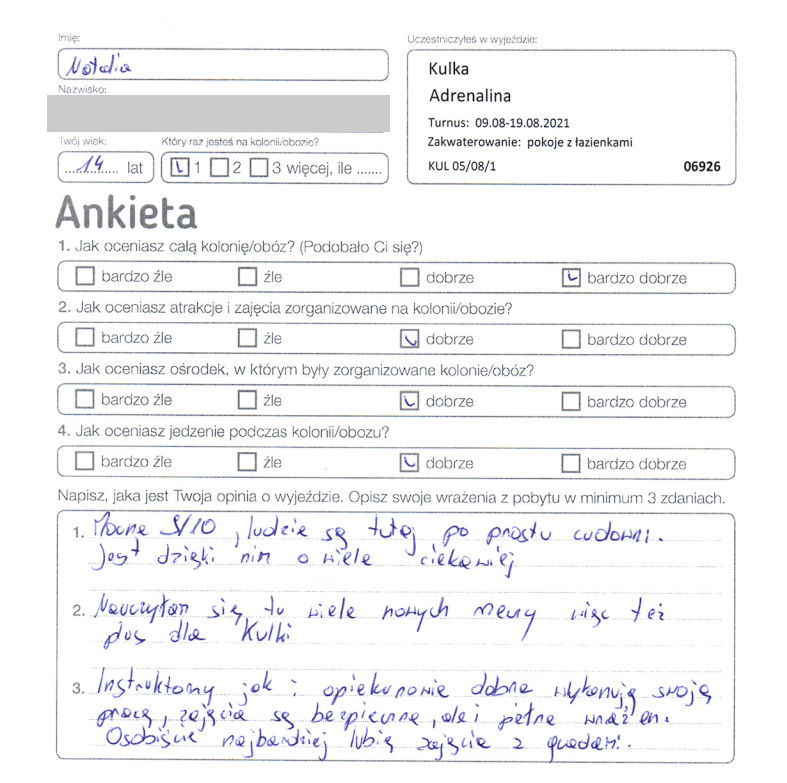 Imię:
Natalia
Nazwisko:
Twój wiek:
14 lat
Który raz jesteś na kolonii/obozie?
1 2 3 więcej, ile .......
Uczestniczyłeś w wyjeździe:
Kulka
Adrenalina
Turnus: 09.08-19.08.2021
Zakwaterowanie: pokoje z łazienkami
KUL 05/08/1 06926
Ankieta
1. Jak oceniasz całą kolonię/obóz? (Podobało Ci się?)
bardzo źle źle dobrze bardzo dobrze
2. Jak oceniasz atrakcje i zajęcia zorganizowane na kolonii/obozie?
bardzo źle źle dobrze bardzo dobrze
3. Jak oceniasz ośrodek, w którym były zorganizowane kolonie/obóz?
bardzo źle źle dobrze bardzo dobrze
4. Jak oceniasz jedzenie podczas kolonii/obozu?
bardzo źle źle dobrze bardzo dobrze
Napisz, jaka jest Twoja opinia o wyjeździe. Opisz swoje wrażenia z pobytu w minimum 3 zdaniach.
1. Mocne 9/10, ludzie są tutaj po prostu cudowni.
Jest dzięki nim o wiele ciekawiej
2. Nauczyłam się tu wiele nowych więc też
plus dla Kulki
3. Instruktorzy jak i opiekunowie dobrze wykonują swoją
pracę, zajęcia są bezpieczne, ale i pełne wrażeń.
Osobiście najbardziej lubię zajęcia z quadami.